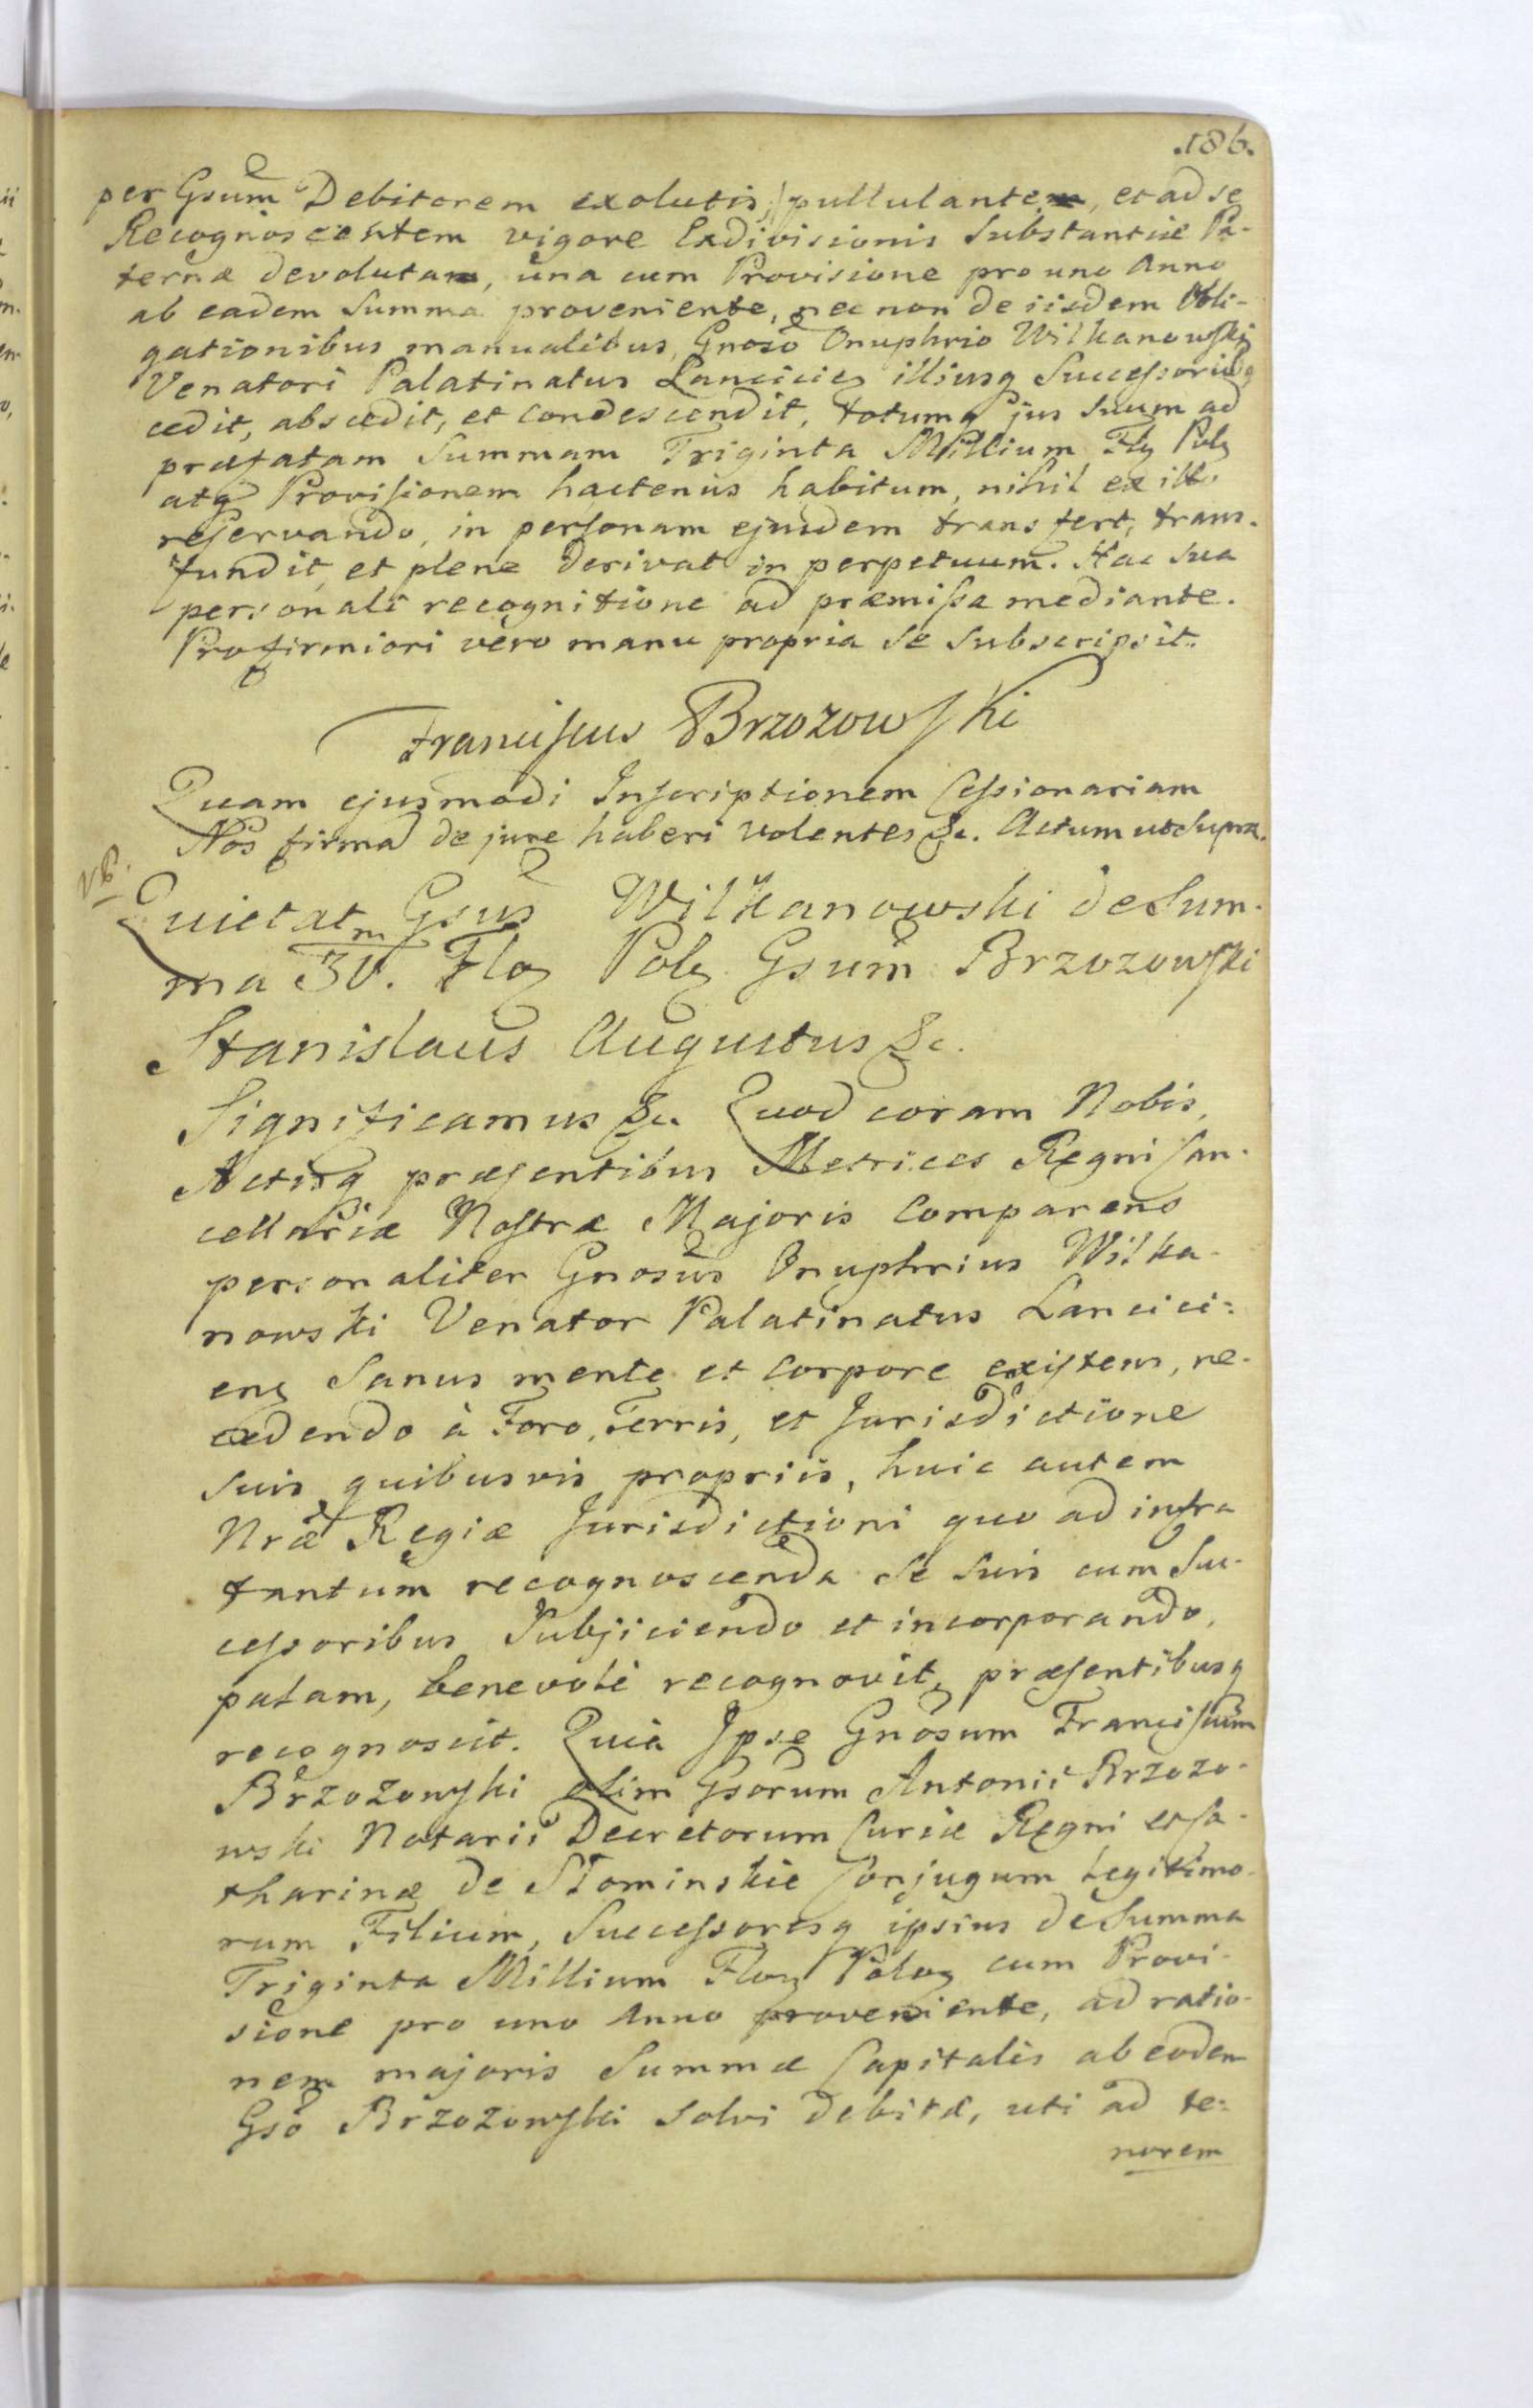 .186.
per Gsum Debitorem exolutis, pullulantem, et ad se
Recognoscentem vigore Exdivisionis Substantiæ Pa-
ternæ devolutam, una cum Provisione pro uno Anno
ab eadem Summa proveniente, nec non de iisdem Obli-
gationibus manualibus, Gnoso Onuphrio Wilkanowski
Venatori Palatinatus Lancicien illiusq Successoribq
cedit, abscedit, et condescendit, totumq jus suum ad
præfatam Summam Triginta Millium Flg Polg
atq Provisionem hactenus habitum, nihil ex illo
reservando, in personam ejusdem transfert, trans-
fundit, et plene derivat in perpetuum. Hac sua
personali recognitione ad præmissa mediante.
Pro firmiori vero manu propria se subscripsit.
Franciscus Brzozowski
Quam ejusmodi Inscriptionem Cessionariam
Nos firma de jure haberi volentes &c. Actum ut supra.
Quietat Gsus Wilkanowski de Sum-
ma 30.m Flog Polg Gsum Brzozowski
Stanislaus Augustus &c.
Significamus &c. Quod coram Nobis,
Actisq præsentibus Metrices Regni Can-
cellariæ Nostræ Majoris Comparens
personaliter Gnosus Onuphrius Wilka-
nowski Venator Palatinatus Lancici-
eng Sanus mente et corpore existens, re-
cedendo à Foro, Terris, et Jurisdictione
suis quibusvis propriis, huic autem
Nræ Regiæ Jurisdictioni quo ad infra
tantum recognoscenda se suis cum Suc-
cessoribus Subjiciendo et incorporando,
palam, benevole recognovit, præsentibusq
recognoscit. Quia Ipse Gnosum Franciscum
Brzozowski olim Gsorum Antonii Brzozo-
wski Notarii Decretorum Curiæ Regni et Ca-
tharinæ de Słominskie Conjugum legitimo-
rum Filium, Successoresq ipsius de Summa
Triginta Millium Flog Polog cum Provi-
sione pro uno Anno proveniente, ad ratio-
nem majoris Summæ Capitalis ab eodem
Gso Brzozowski solvi debitæ, uti ad te-
norem